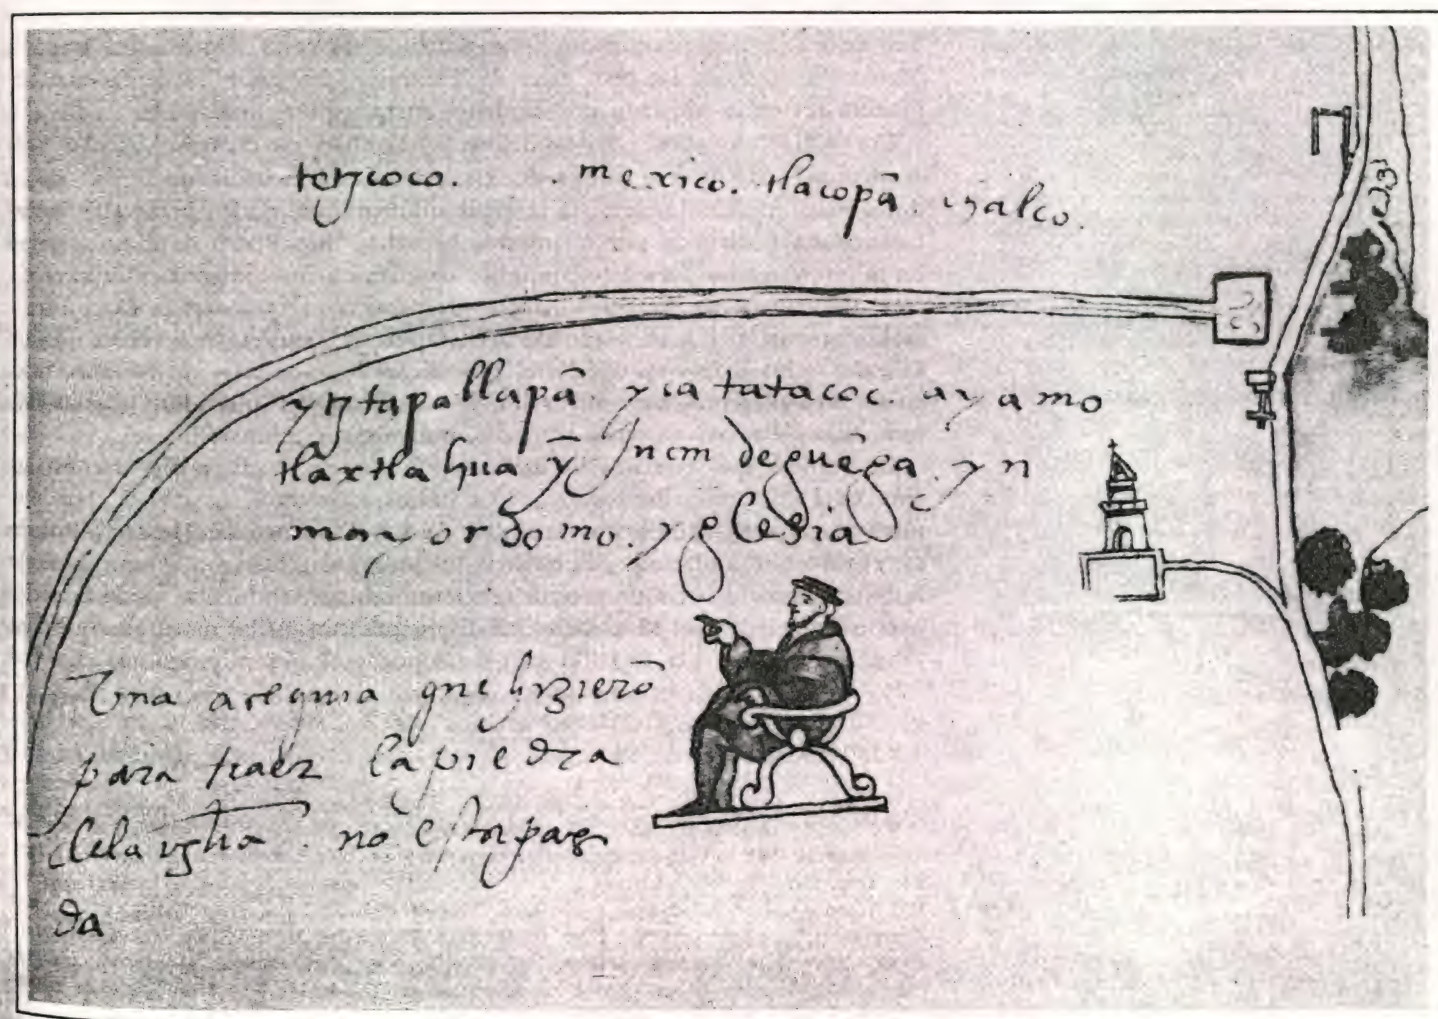 tetzcoco. . mexico. tlacopā. chalco.
ytztapallapā. yca tatacoc. ayamo
tlaxtlahua ȳ Juem deguēga. yn
mayordomo. yglesia
Una acequia que hizierō
para traer la piedra
dela iglia. nō esta pag
da